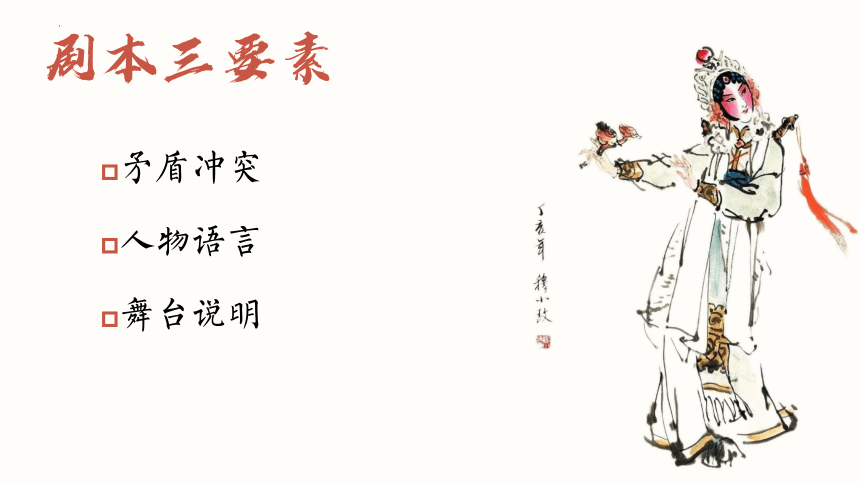 剧本三要素
矛盾冲突
人物语言
舞台说明
丁亥年 穆小玫